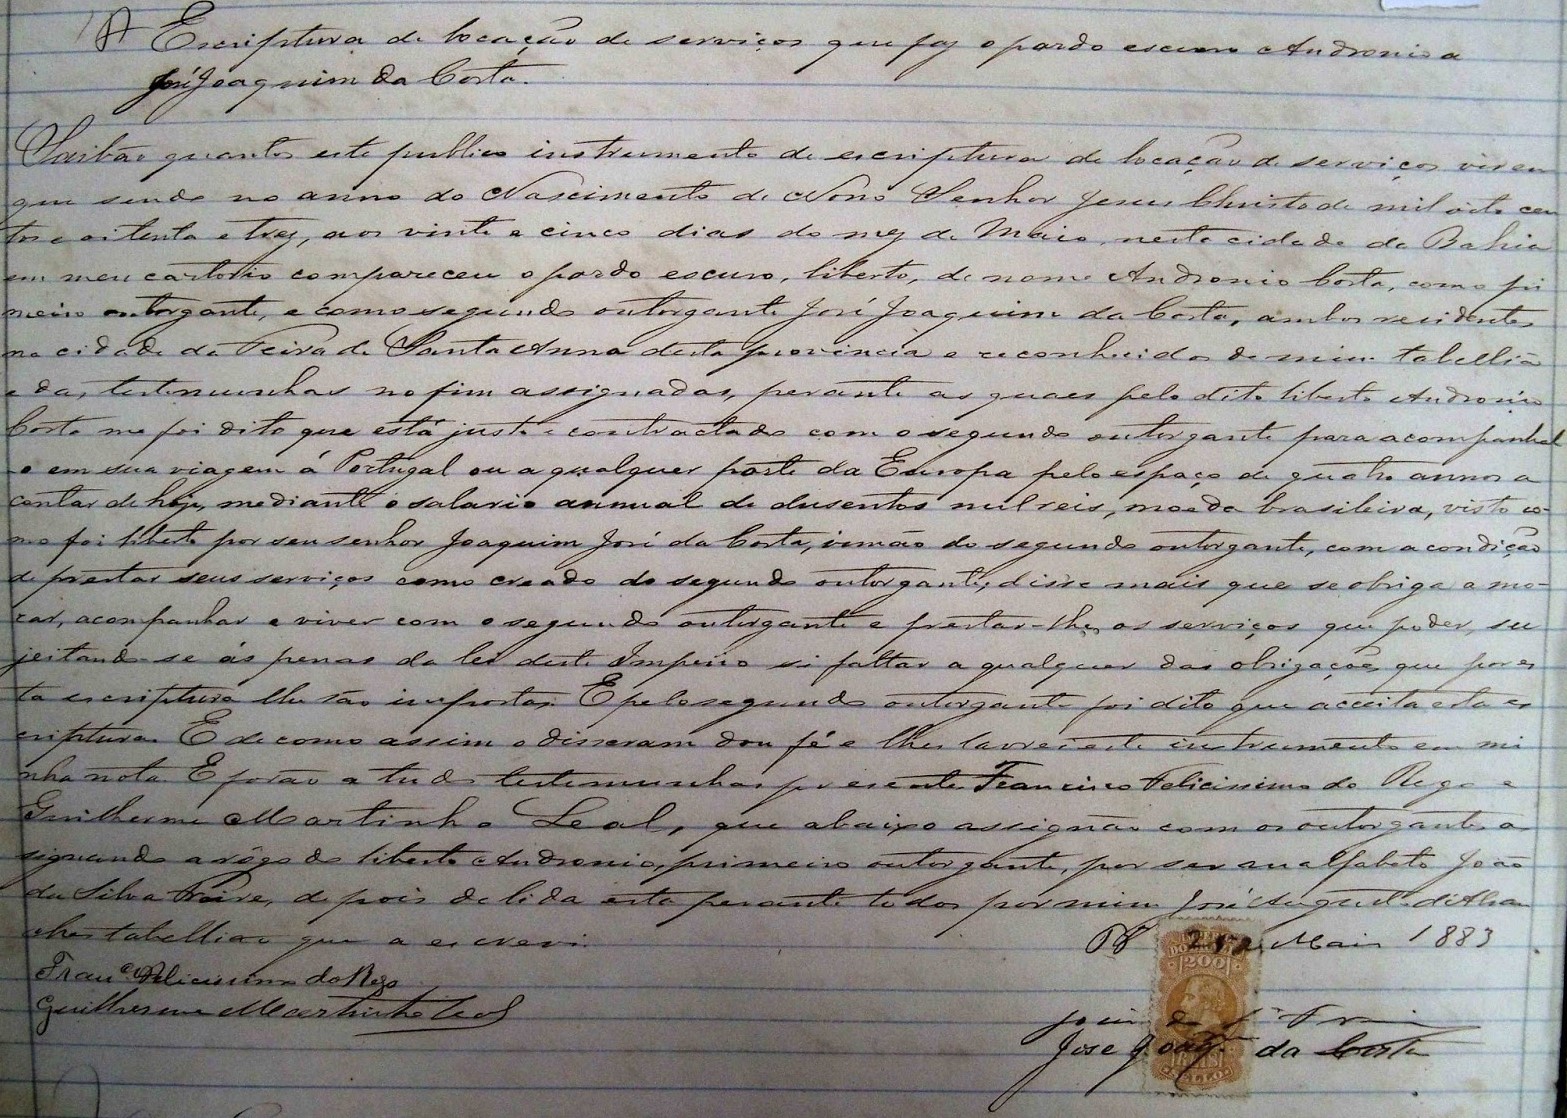 Escriptura de locação de serviços que faz o pardo escuro Andronio a
José Joaquim da Costa.
Saibão quantos este publico instrumento de escriptura de locação de serviços virem
que sendo no anno do Nascimento de Nosso Senhor Jesus Christo de mil oito cen
tos e oitenta e trez, aos vinte e cinco dias do mez de Maio, nesta cidade da Bahia
em meu cartorio compareceu o pardo escuro, liberto, de nome Andronio Costa, como pri
meiro outorgante, e como segundo outorgante José Joaquim da Costa, ambos residentes
na cidade da Feira de Santa Anna desta provincia e reconhecidos de mim tabellião
e das testemunhas no fim assignadas, perante as quaes pelo dito liberto Andronio
Costa me foi dito que está justo e contractado com o segundo outorgante para acompanhal
-o em sua viagem á Portugal ou a qualquer parte da Europa pelo espaço de quatro annos a
contar de hoje, mediante o salario annual de dusentos mil reis, moeda brasileira, visto co-
mo foi liberto por seu senhor Joaquim José da Costa, irmão do segundo outorgante, com a condição
de prestar seus serviços como creado do segundo outorgante; disse mais que se obriga a mo-
rar, acompanhar e viver com o segundo outorgante e prestar-lhe os serviços que poder, su
jeitando-se ás penas da lei deste Imperio si faltar a qualquer das obrigações que por es
ta escriptura lhe são impostas. E pelo segundo outorgante foi dito que acceita esta es
criptura. E de como assim o disseram dou fé e lhes lavrei este instrumento em mi
nha nota. E forão a tudo testemunhas presentes Francisco Felicissimo do Rego e
Guilherme Martinho Leal, que abaixo assignão com os outorgantes as
signando a rôgo do liberto Andronio, primeiro outorgante, por ser analfabeto João
da Silva Freire, depois de lida esta perante todos por mim José Augusto
tabellião que a escrevi.
25 de Maio 1883
200
Franco. Felicissimo do Rego
Guilherme Martinho Leal
José Joaqm. da Costa